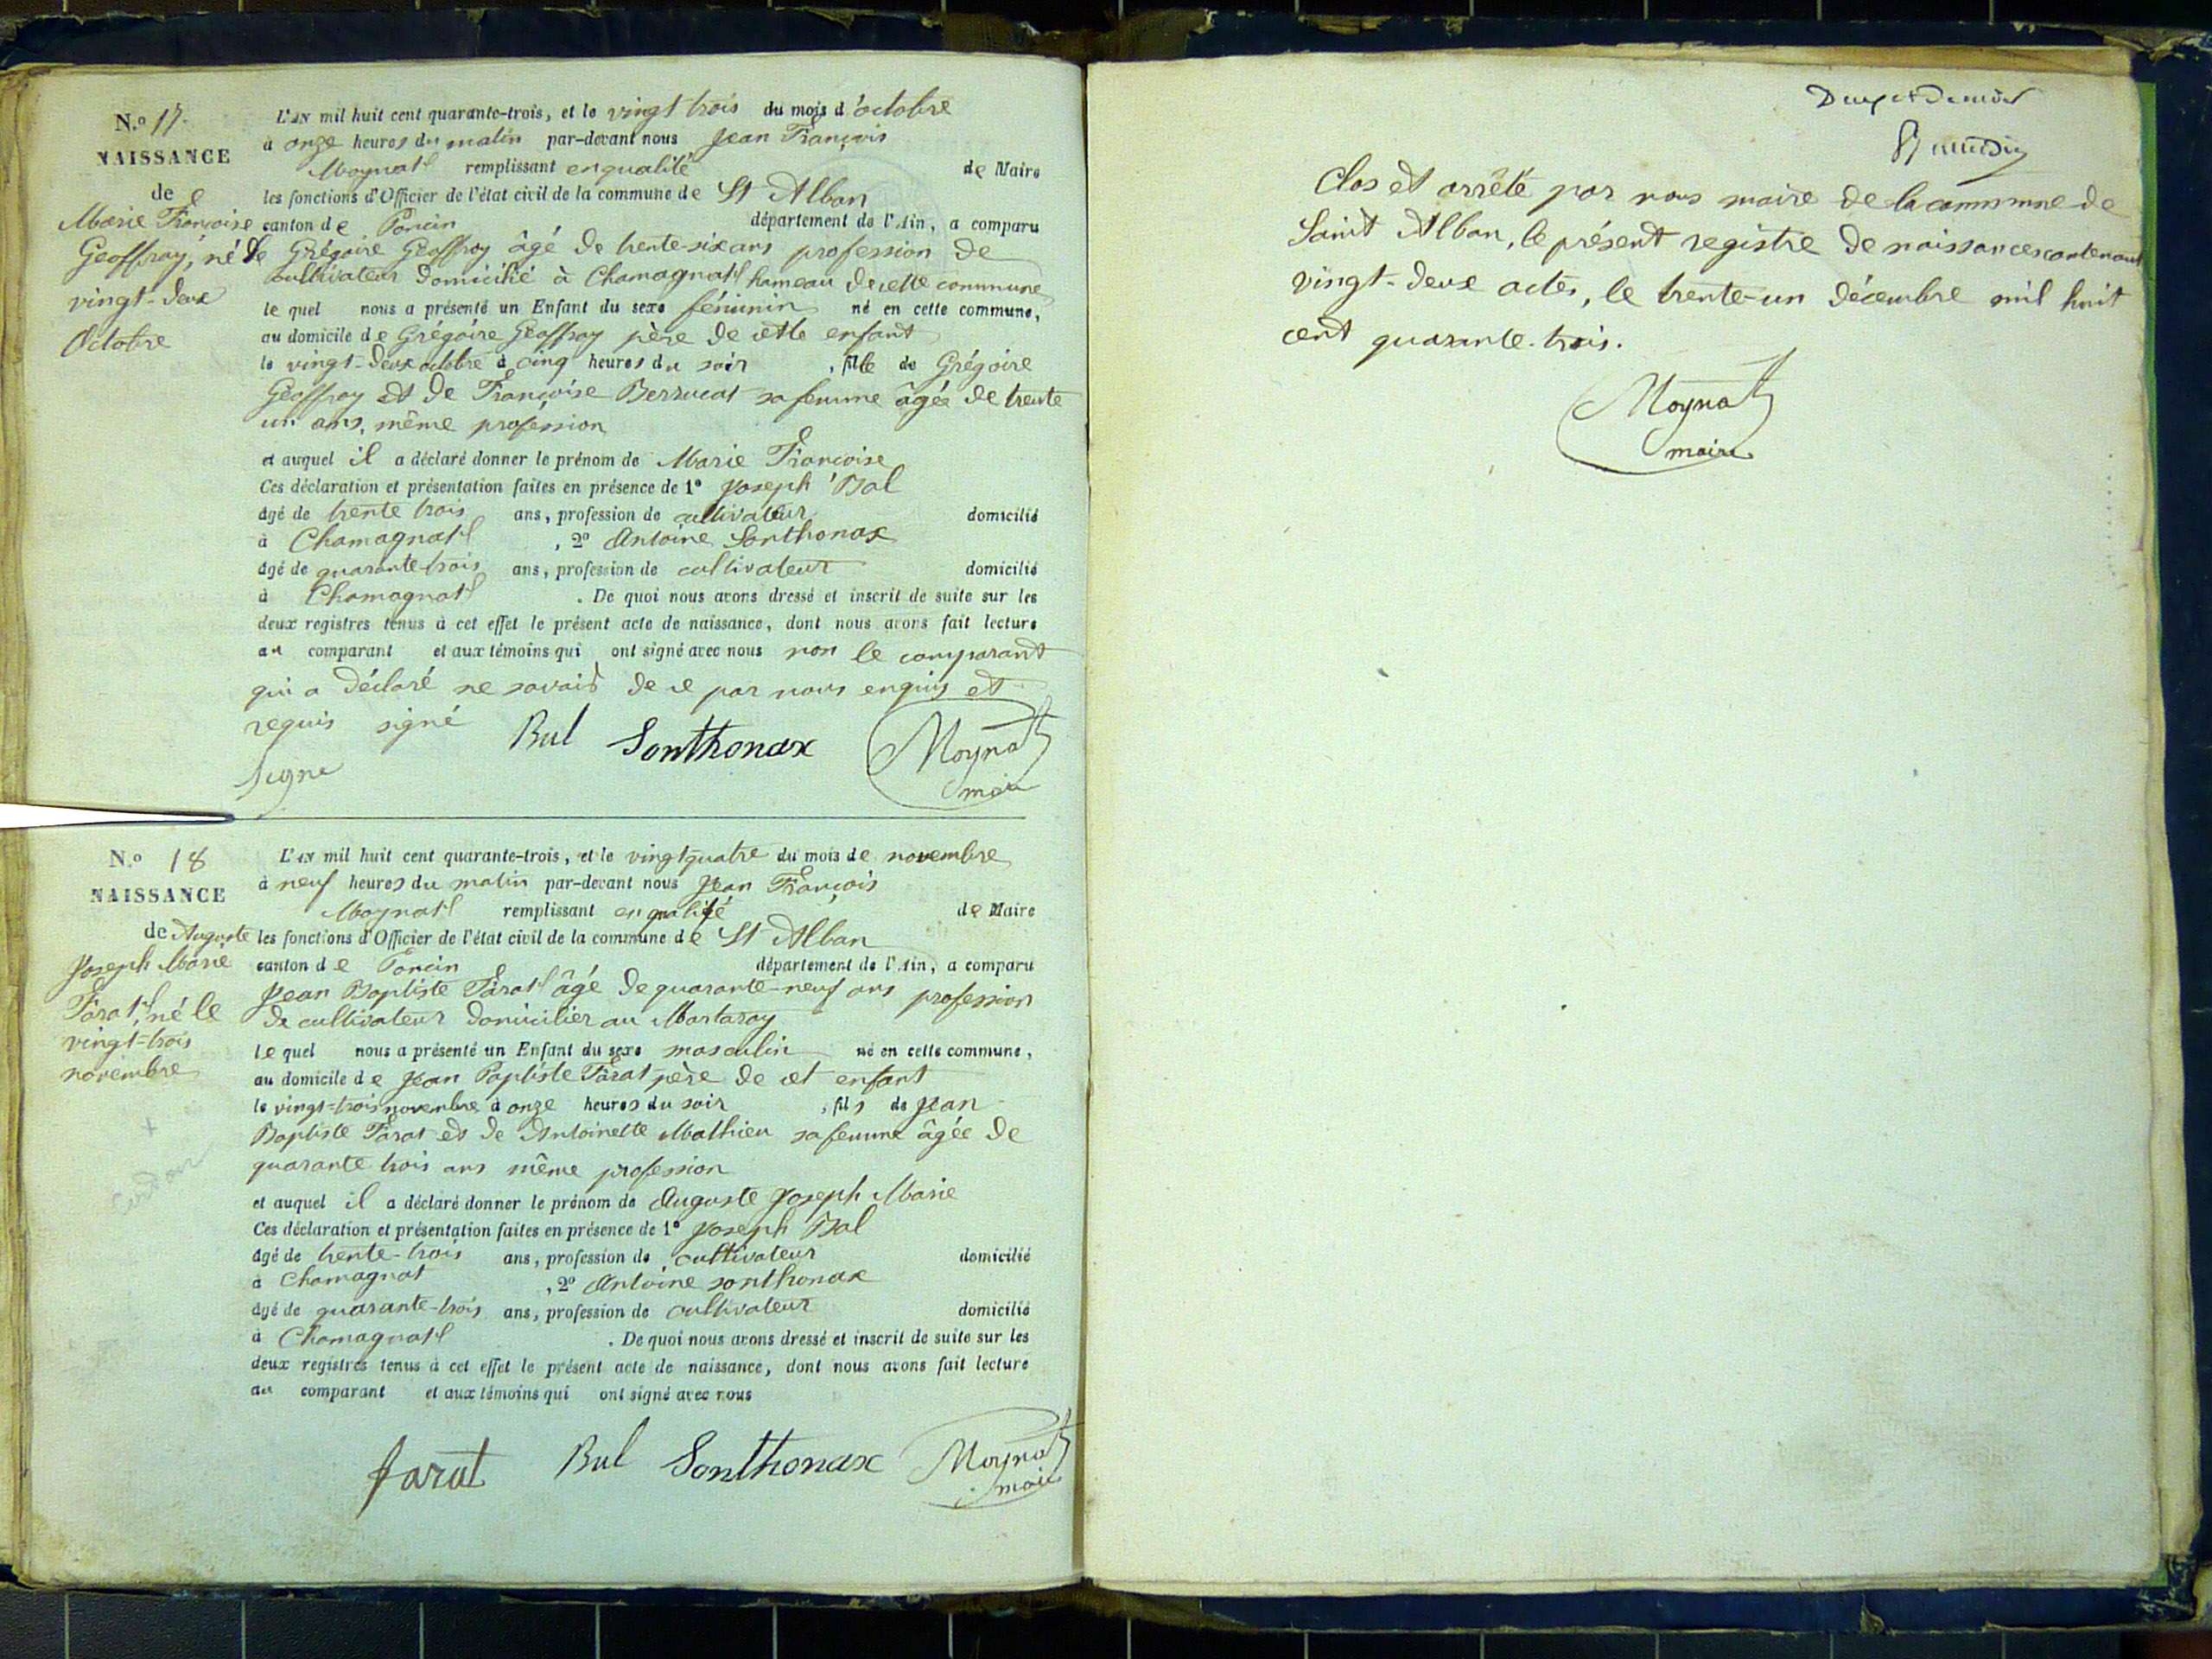 N.o 17.
NAISSANCE
de
Marie Françoise
Geoffray, né le
vingt-deux
Octobre
L'AN mil huit cent quarante-trois, et le vingt trois du mois d'octobre
à onze heures du matin par-devant nous Jean François
Moynat remplissant en qualité de Maire
les fonctions d'Officier de l'état civil de la commune de St Alban
canton de Poncin département de l'Ain, a comparu
Grégoire Geoffroy âgé de trente-six ans profession de
cultivateur domicilié à Chamagnat hameau de cette commune
le quel nous a présenté un Enfant du sexe féminin né en cette commune,
au domicile de Grégoire Geoffroy père de cette enfant
le vingt-deux octobre à cinq heures du soir , fille de Grégoire
Geoffroy et de Françoise Berrucat sa femme âgée de trente
un ans, même profession
et auquel il a déclaré donner le prénom de Marie Françoise
Ces déclaration et présentation faites en présence de 1° Joseph Bal
âgé de trente trois ans, profession de cultivateur domicilié
à Chamagnat , 2° Antoine Sonthonax
âgé de quarante-trois ans, profession de cultivateur domicilié
à Chamagnat . De quoi nous avons dressé et inscrit de suite sur les
deux registres tenus à cet effet le présent acte de naissance, dont nous avons fait lecture
au comparant et aux témoins qui ont signé avec nous non le comparant
qui a déclaré ne savoir de ce par nous enquis et
requis signé
signe
Bul Sonthonax Moynat
maire
N.o 18
NAISSANCE
de Auguste
Joseph Marie
Farat, né le
vingt-trois
novembre
L'AN mil huit cent quarante-trois, et le vingt quatre du mois de novembre
à neuf heures du matin par-devant nous Jean François
Moynat remplissant en qualité de Maire
les fonctions d'Officier de l'état civil de la commune de St Alban
canton de Poncin département de l'Ain, a comparu
Jean Baptiste Farat âgé de quarante-neuf ans profession
de cultivateur domicilier au Martaray
le quel nous a présenté un Enfant du sexe masculin né en cette commune,
au domicile de Jean Baptiste Farat père de cet enfant
le vingt-trois novembre à onze heures du soir , fils de Jean
Baptiste Farat et de Antoinette Mathieu sa femme âgée de
quarante trois ans même profession
et auquel il a déclaré donner le prénom de Auguste Joseph Marie
Ces déclaration et présentation faites en présence de 1° Joseph Bal
âgé de trente-trois ans, profession de cultivateur domicilié
à Chamagnat , 2° Antoine Sonthonax
âgé de quarante-trois ans, profession de cultivateur domicilié
à Chamagnat . De quoi nous avons dressé et inscrit de suite sur les
deux registres tenus à cet effet le présent acte de naissance, dont nous avons fait lecture
au comparant et aux témoins qui ont signé avec nous
farat Bul Sonthonax Moynat
maire
Clos et arrêté par nous maire de la commune de
Saint Alban, le présent registre de naissances contenant
vingt-deux actes, le trente-un décembre mil huit
cent quarante-trois.
Moynat
maire